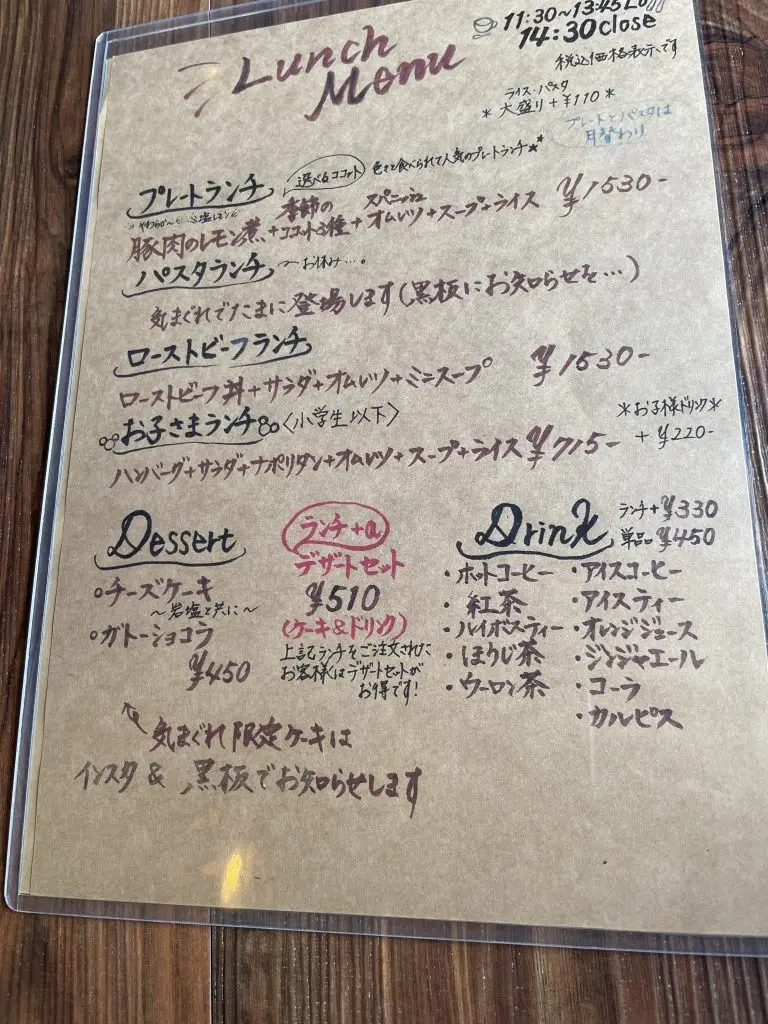 Lunch Menu
11:30~13:45 L.o
14:30 close
税込価格表示です
ライス・パスタ
*大盛り+¥110*
プレートとパスタは
月替わり
プレートランチ 選べるココット 色々と食べられて人気のプレートランチ★★
やわらか~ 塩レモン
豚肉のレモン煮+季節のココット3種+スパニッシュオムレツ+スープ+ライス ¥1530-
パスタランチ ~お休み…。
気まぐれでたまに登場します(黒板にお知らせを…)
ローストビーフランチ
ローストビーフ丼+サラダ+オムレツ+ミニスープ ¥1530-
お子さまランチ〈小学生以下〉
*お子様ドリンク*
+¥220-
ハンバーグ+サラダ+ナポリタン+オムレツ+スープ+ライス ¥715-
Dessert
・チーズケーキ
~岩塩と共に~
・ガトーショコラ
¥450
ランチ+α
デザートセット
¥510
(ケーキ&ドリンク)
上記ランチをご注文された
お客様はデザートセットが
お得です!
Drink
ランチ+¥330
単品 ¥450
・ホットコーヒー ・アイスコーヒー
・紅茶 ・アイスティー
・ルイボスティー ・オレンジジュース
・ほうじ茶 ・ジンジャエール
・ウーロン茶 ・コーラ
・カルピス
気まぐれ限定ケーキは
インスタ & 黒板でお知らせします